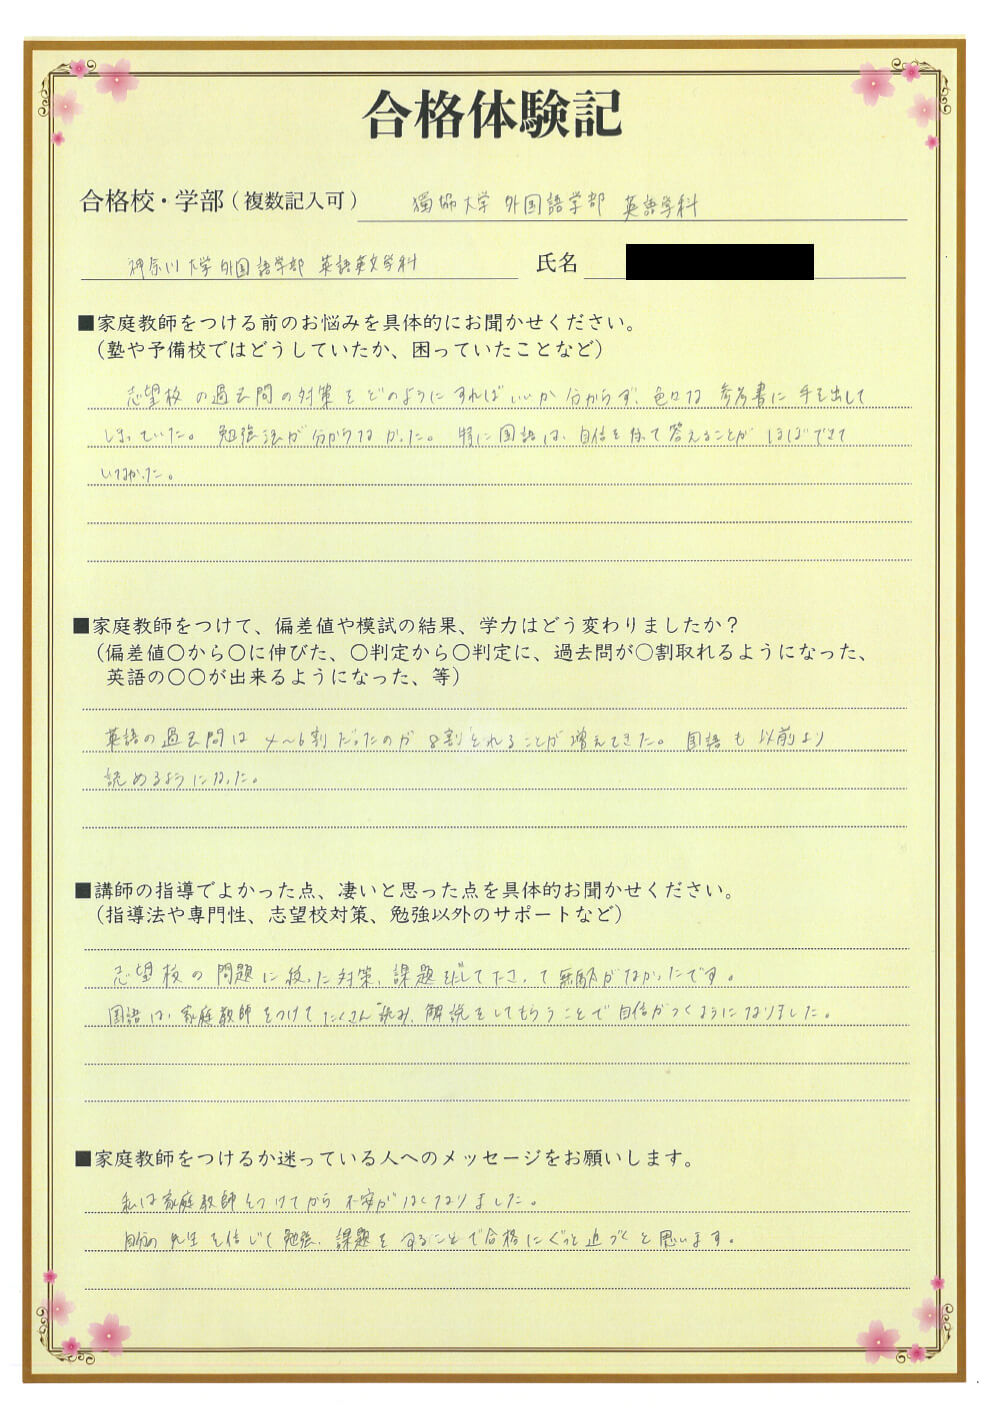 合格体験記
合格校・学部（複数記入可） 獨協大学 外国語学部 英語学科
神奈川大学外国語学部 英語英文学科 氏名
■家庭教師をつける前のお悩みを具体的にお聞かせください。
（塾や予備校ではどうしていたか、困っていたことなど）
志望校の過去問の対策をどのようにすればいいか分からず、色々な参考書に手を出して
しまっていた。勉強法が分からなかった。特に国語は、自信を持って答えることがほぼできて
いなかった。
■家庭教師をつけて、偏差値や模試の結果、学力はどう変わりましたか？
（偏差値〇から〇に伸びた、〇判定から〇判定に、過去問が〇割取れるようになった、
英語の〇〇が出来るようになった、等）
英語の過去問は4～6割だったのが8割とれることが増えてきた。国語も以前より
読めるようになった。
■講師の指導でよかった点、凄いと思った点を具体的お聞かせください。
（指導法や専門性、志望校対策、勉強以外のサポートなど）
志望校の問題に絞った対策、課題を出して下さって無駄がなかったです。
国語は、家庭教師をつけてたくさん読み、解説をしてもらうことで自信がつくようになりました。
■家庭教師をつけるか迷っている人へのメッセージをお願いします。
私は家庭教師をつけてから不安がなくなりました。
自分の先生を信じて勉強、課題をすることで合格にぐっと近づくと思います。